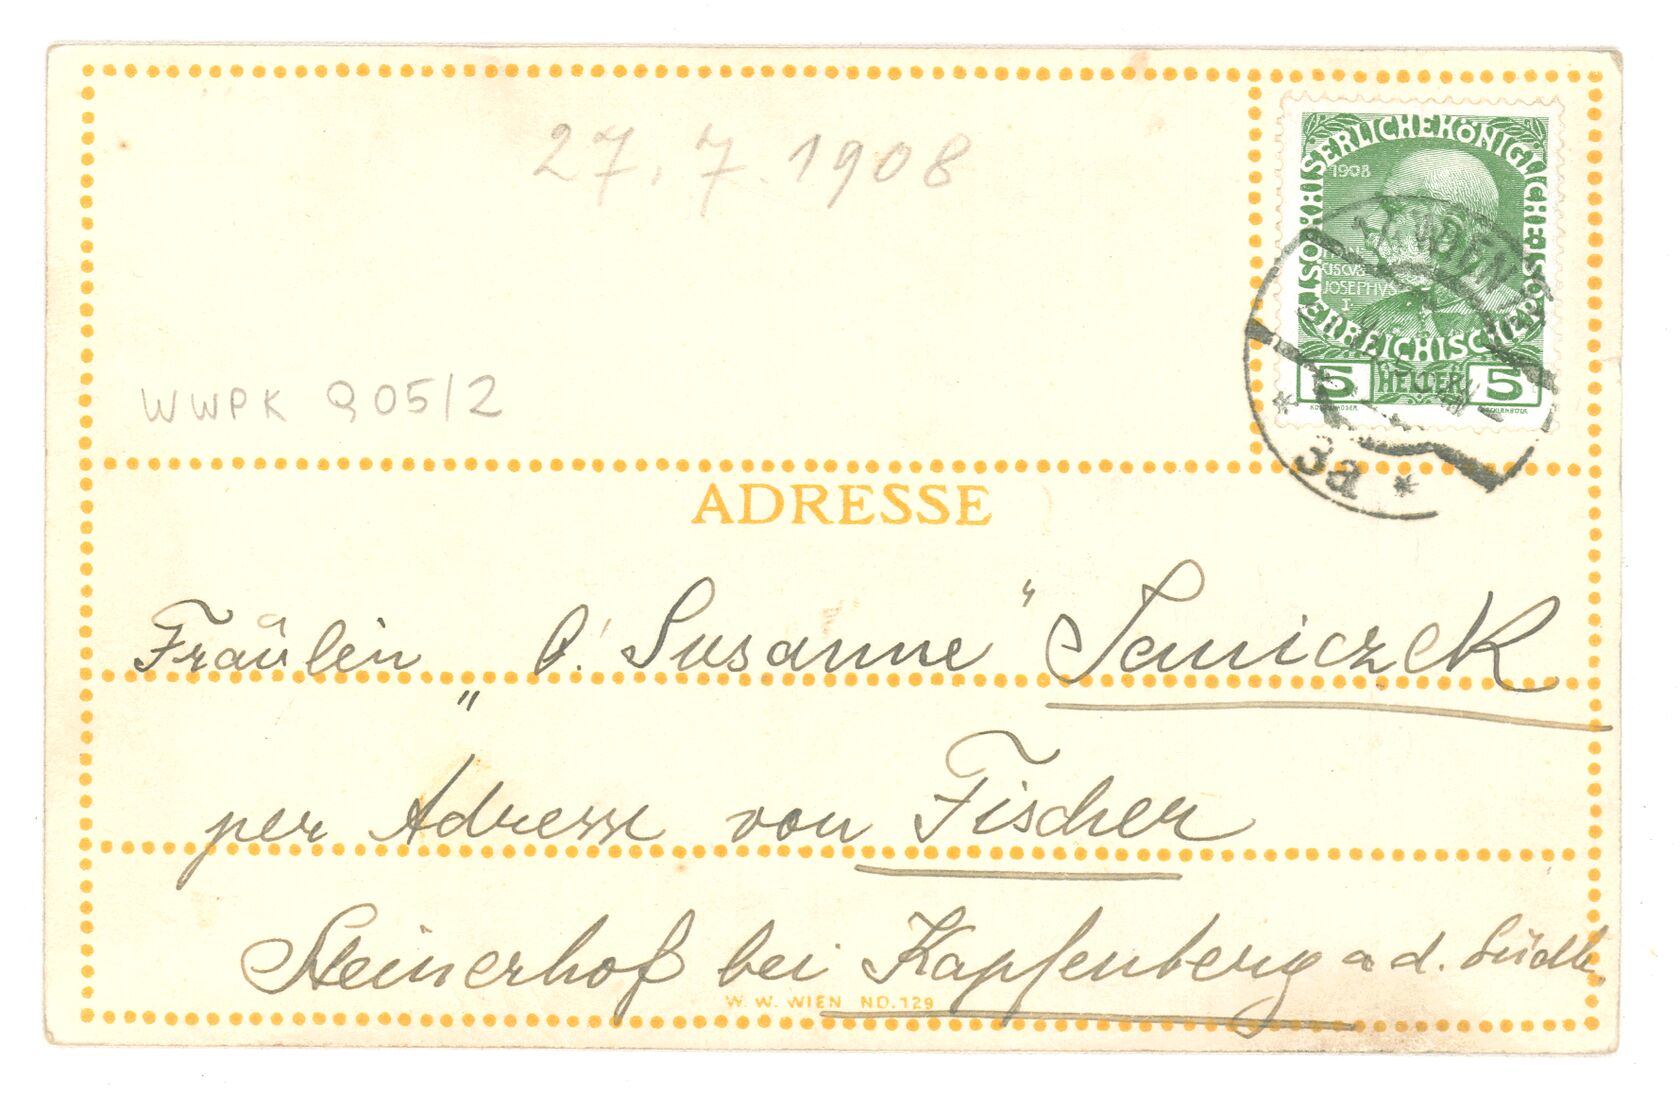 27. 7. 1908
KAISERLICHE KÖNIGLICHE
ÖSTERREICHISCHE
1908
JOSEPHVS
I.
5 HELLER 5
WIEN
3a
WWPK Q05/2
ADRESSE
Fräulein Susanne
per Adresse von Fischer
Steinerhof bei Kapfenberg a d. Südb.
W. W. WIEN NO. 129